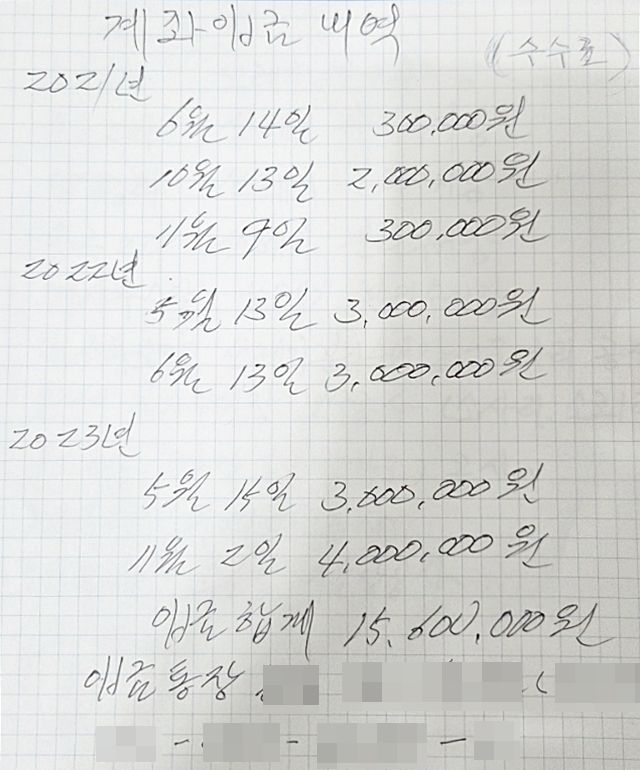 계좌입금 내역
(수수료)
2021년
6월 14일 300,000원
10월 13일 2,000,000원
11월 9일 300,000원
2022년
5월 13일 3,000,000원
6월 13일 3,000,000원
2023년
5월 15일 3,000,000원
11월 2일 4,000,000원
입금합계 15,600,000원
입금통장